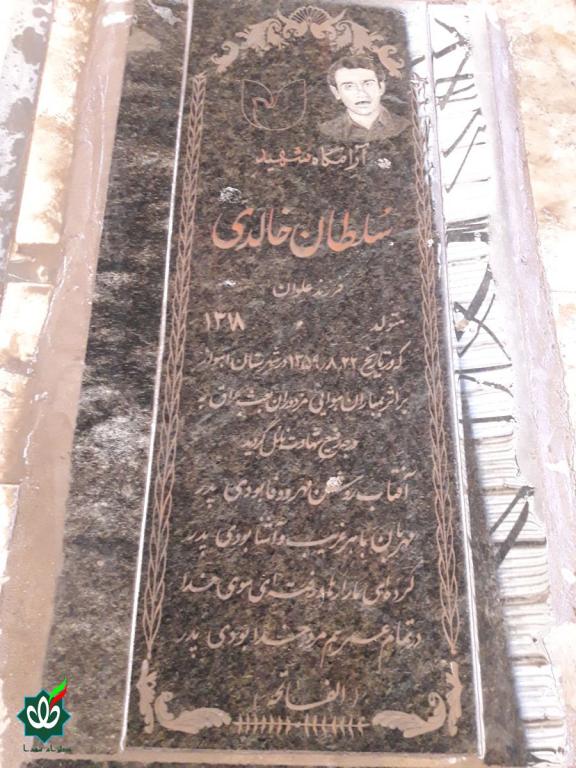 آرامگاه شهید
سلطان خالدی
فرزند علوان
متولد ۱۳۱۸
که در تاریخ ۱۳۵۹٫۸٫۲۲ در شهرستان اهواز
بر اثر بمباران هوایی مزدوران بعث عراق به
درجه رفیع شهادت نائل گردید
آفتاب روشن مهر و وفا بودی پدر
مهربان با هر غریب و آشنا بودی پدر
کرده‌ای ما را رها رفته‌ای سوی خدا
در تمام عمر هم مرد خدا بودی پدر
(الفاتحه)